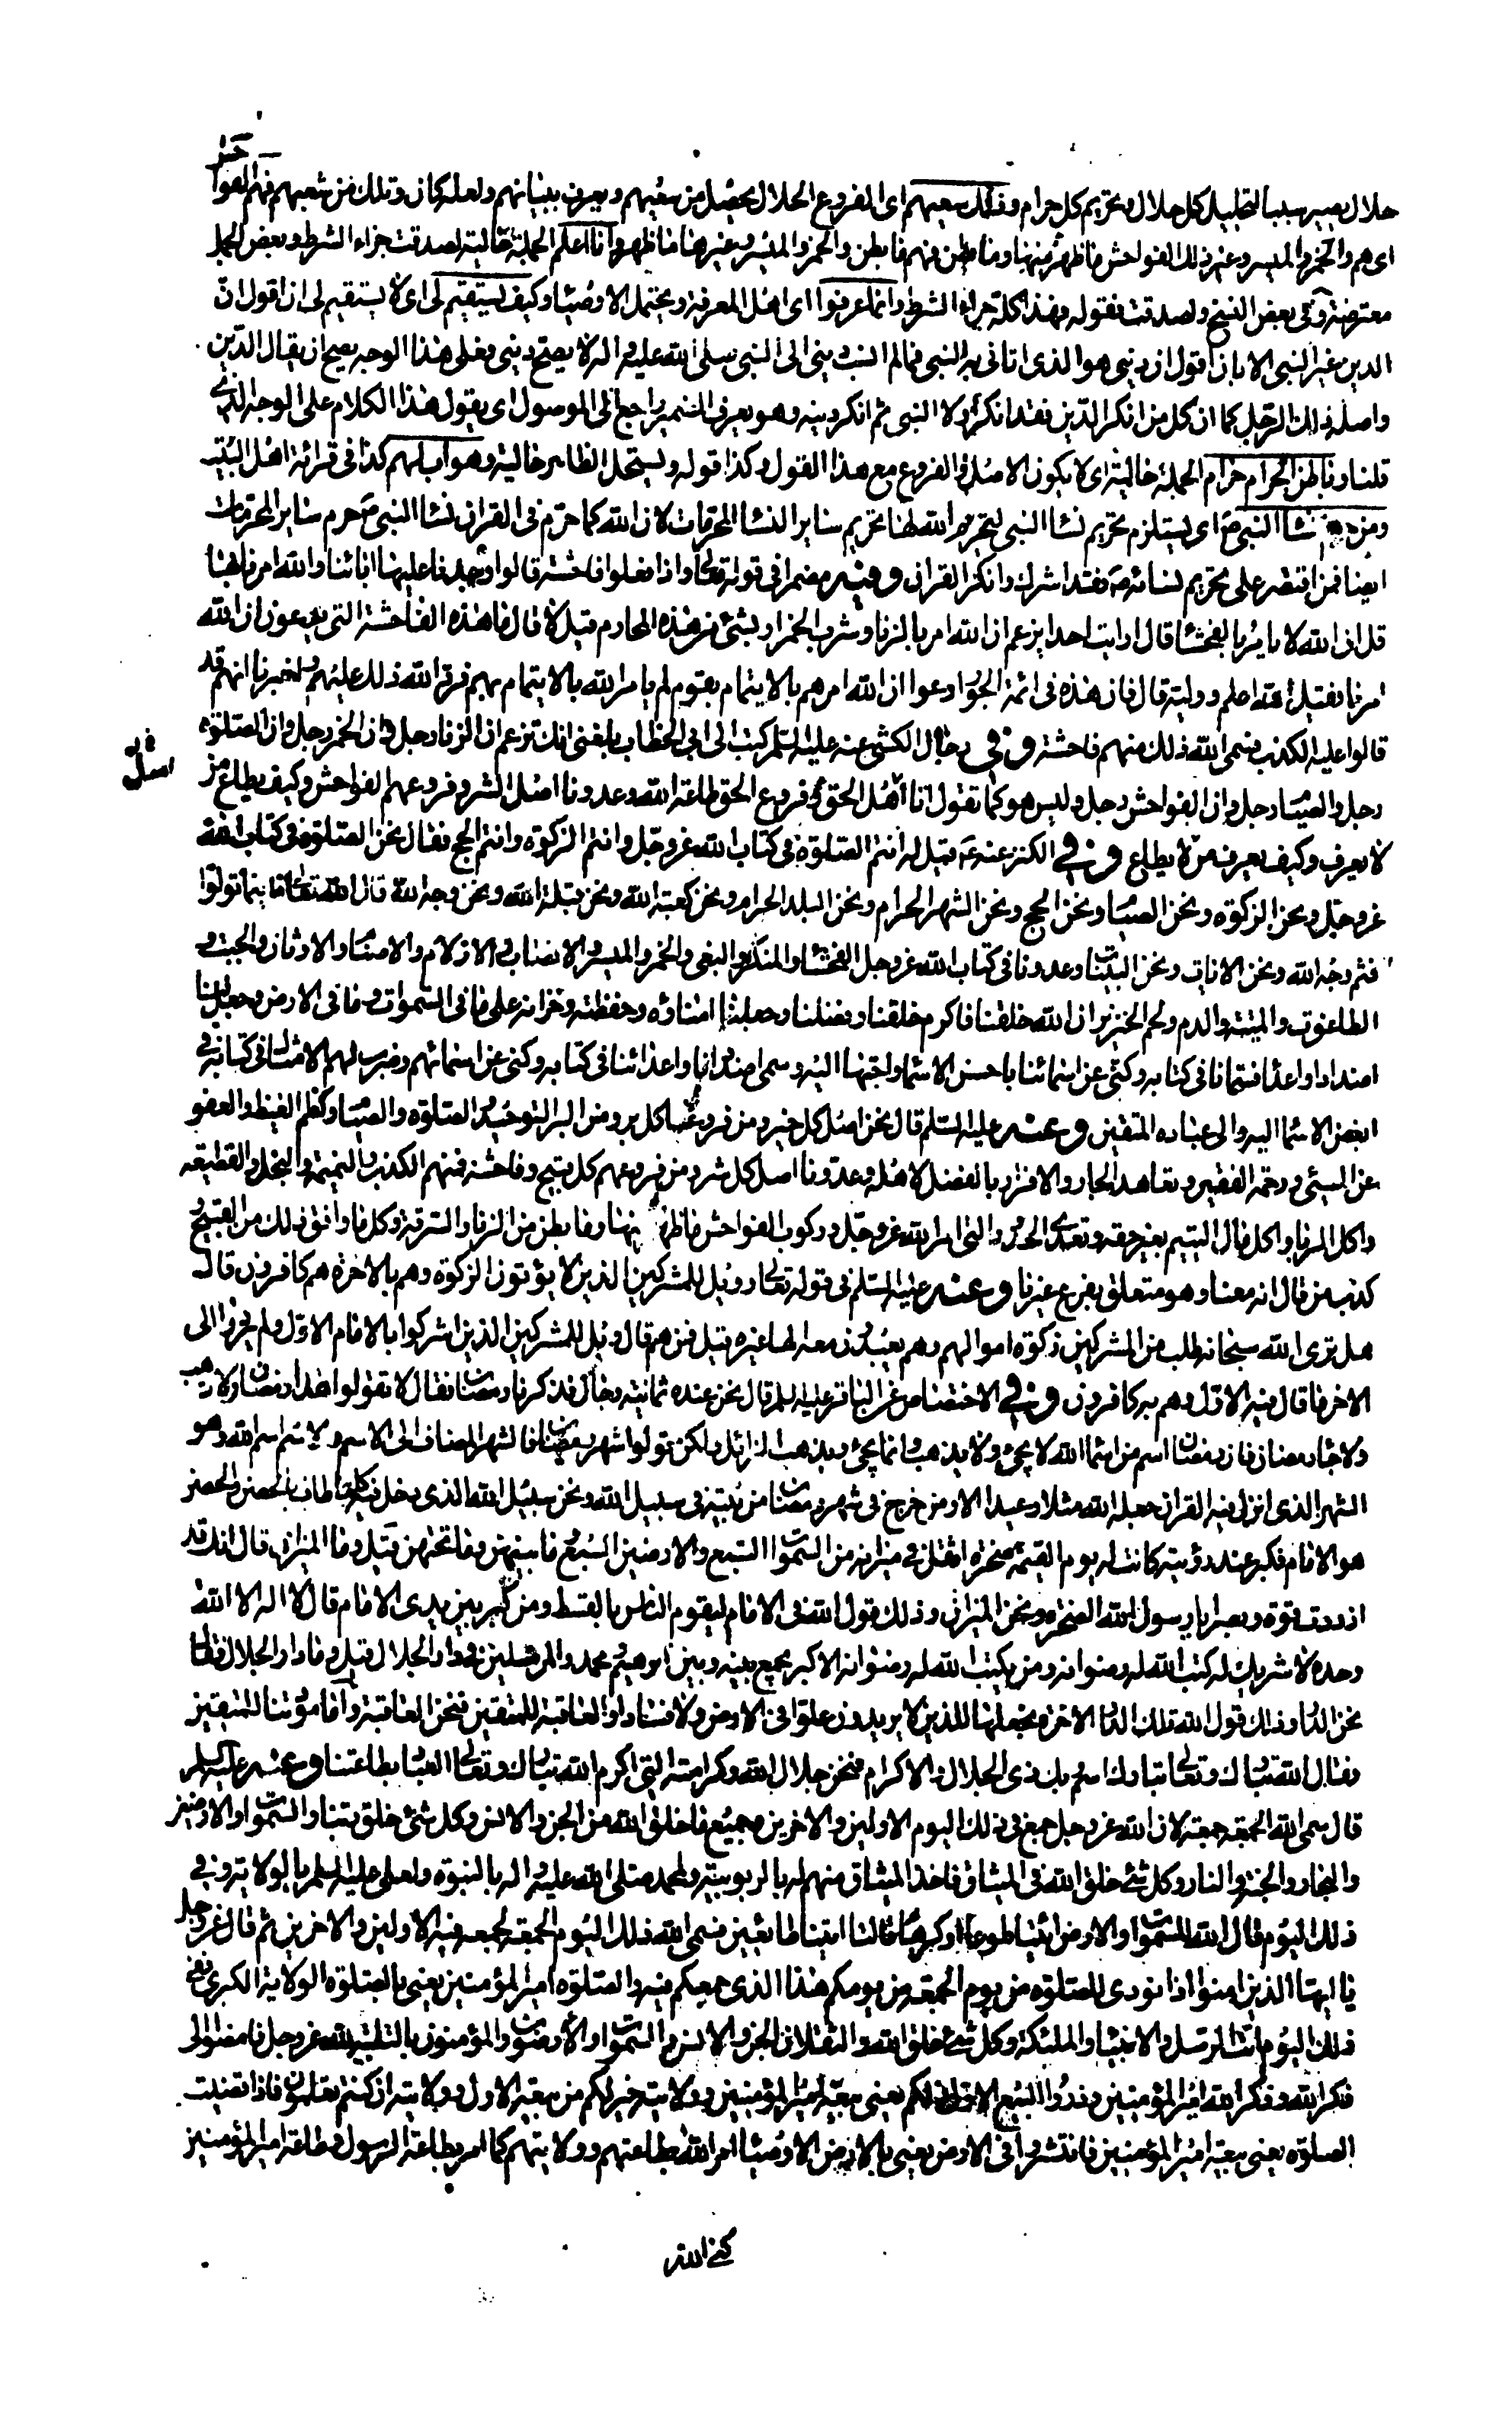 حلال يصير سببا لتحليل كل حلال وتحريم كل حرام وذلك سعيهم اى الفروع الحلال يحصل من سعيهم ويعرف ببيانهم ولعله كان وتلك من شعبهم فهم الهوا
اى هم والخمر والميسر وغير ذلك الفواحش ما ظهر منها وما بطن فهم ما بطن والخمر والميسر وغيرها ما ظهر وانا اعلم الجملة حالية لصدقت جزاء الشرط وبعض الجمل
معترضة وفى بعض النسخ ولصدقت فقوله فهذا كله جزاء الشرط وانما عرفوا اى اهل المعرفة ويحتمل الاوصيا وكيف يستقيم لى اى لا يستقيم لى ان اقول ان
الدين غير النبى الا بان اقول ان دينى هو الذى اتانى به النبى فما لم انسب دينى الى النبى صلى الله عليه واله لا يصح دينى فعلى هذا الوجه يصح ان يقال الدين
واصله ذلك الرجل كما ان كل من انكر الدين فقد انكر اولا النبى ثم انكر دينه وهو يعرف الضمير راجع الى الموصول اى يقول هذا الكلام على الوجه الذى
قلنا وباطن الحرام حرام الجملة حالية اى لا يكون الاصل والفروع مع هذا القول وكذا قوله ويستحل الظاهر حالية وهو اب لهم كذا فى قرائة اهل البيت
ومن حرم نسا النبى ص اى يستلزم تحريم نسا النبى لتحريم الله لها تحريم ساير النسا المحرمات لان الله كما حرم فى القران نسا النبى ص حرم ساير المحرمات
ايضا فمن اقتصر على تحريم نسائه ص فقد اشرك وانكر القران وفيه مضمرا فى قوله تعالى واذا فعلوا فاحشة قالوا وجدنا عليها ابائنا والله امرنا بها
قل ان الله لا يامر بالفحشا قال ارايت احدا يزعم ان الله امر بالزنا وشرب الخمر او بشئ من هذه المحارم فقيل لا قال ما هذه الفاحشة التى يدعون ان الله
امرنا فقيل الله اعلم ووليه قال فان هذه فى ائمة الجور ادعوا ان الله امرهم بالايتمام بقوم لم يامر الله بالايتمام بهم فرد الله ذلك عليهم فاخبرنا انهم قد
قالوا عليه الكذب فسمى الله ذلك منهم فاحشة وفى رجال الكشى عنه عليه السلم كتب الى ابى الخطاب بلغنى انك تزعم ان الزنا رجل وان الخمر رجل وان الصلوة
رجل والصيام رجل وان الفواحش رجل وليس هو كما تقول انا اصل الحق وفروع الحق طاعة الله وعدونا اصل الشر وفروعهم الفواحش وكيف يطاع من
لا يعرف وكيف يعرف من لا يطاع وفى الكنز عنه ع قيل له انتم الصلوة فى كتاب الله عز وجل وانتم الزكوة وانتم الحج فقال نحن الصلوة فى كتاب الله
عز وجل ونحن الزكوة ونحن الصيام ونحن الحج ونحن الشهر الحرام ونحن البلد الحرام ونحن كعبة الله ونحن قبلة الله ونحن وجه الله قال الله تعالى فاينما تولوا
فثم وجه الله ونحن الايات ونحن البينات وعدونا فى كتاب الله عز وجل الفحشا والمنكر والبغى والخمر والميسر والانصاب والازلام والاصنام والاوثان والجبت و
الطاغوت والميتة والدم ولحم الخنزير ان الله خلقنا فاكرم خلقنا وفضلنا وجعلنا امناؤه وحفظته وخزانه على ما فى السموات وما فى الارض وجعل لنا
اضدادا واعدا فسمانا فى كتابه وكنى عن اسمائنا باحسن الاسما واحبها اليه وسمى اضدادنا واعدائنا فى كتابه وكنى عن اسمائهم وضرب لهم الامثال فى كتابه فى
ابغض الاسما اليه والى عباده المتقين وعنه عليه السلم قال نحن اصل كل خير ومن فروعنا كل بر ومن البر التوحيد والصلوة والصيام وكظم الغيظ والعفو
عن المسئ ورحمة الفقير وتعاهد الجار والاقرار بالفضل لاهله وعدونا اصل كل شر ومن فروعهم كل قبيح وفاحشة فمنهم الكذب والنميمة والبخل والقطيعة
واكل الربا واكل مال اليتيم بغير حقه وتعدى الحدود التى امر الله عز وجل وركوب الفواحش ما ظهر منها وما بطن من الزنا والسرقة وكل ما وافق ذلك من القبيح و
كذب من قال انه معنا وهو متعلق بفرع غيرنا وعنه عليه السلم فى قوله تعالى وويل للمشركين الذين لا يؤتون الزكوة وهم بالاخرة هم كافرون قال
هل ترى الله سبحانه طلب من المشركين زكوة اموالهم وهم يعبدون معه الها غيره قيل فمن هم قال ويل للمشركين الذين اشركوا بالامام الاول ولم يردوا الى
الاخر ما قال فيه الاول وهم به كافرون وفى الاختصاص عن الباقر عليه السلم قال نحن عنده ثمانية رجال فذكرنا رمضان فقال لا تقولوا هذا رمضان ولا ذهب
ولا جاء رمضان فان رمضان اسم من اسما الله لا يجئ ولا يذهب وانما يجئ ويذهب الزائل ولكن قولوا شهر رمضان فالشهر المضاف الى الاسم والاسم اسم الله وهو
الشهر الذى انزل فيه القران جعله الله مثلا وعيدا الا ومن خرج فى شهر رمضان من بيته فى سبيل الله ونحن سبيل الله الذى من دخل فيه يطاف بالحصن والحصن
هو الامام فكبر عند رؤيته كانت له يوم القيمة صخرة اثقل فى ميزانه من السموات السبع والارضين السبع وما بينهن وما تحتهن قيل وما الميزان قال انك قد
ازددت قوة وبصرا يا رسول الله الصخرة ونحن الميزان وذلك قول الله فى الامام ليقوم الناس بالقسط ومن كبر بين يدى الامام قال لا اله الا الله
وحده لا شريك له كتب الله له رضوانه ومن يكتب الله له رضوانه الاكبر يجمع بينه وبين ابرهيم ومحمد والمرسلين فى دار الجلال قيل وما دار الجلال فقال
نحن الدار وذلك قول الله تلك الدار الاخرة نجعلها للذين لا يريدون علوا فى الارض ولا فسادا والعاقبة للمتقين فنحن العاقبة واما مودتنا للمتقين
فقال الله تبارك وتعالى تبارك اسم ربك ذى الجلال والاكرام فنحن جلال الله وكرامته التى اكرم الله تبارك وتعالى العباد بطاعتنا وعنه عليه السلم
قال سمى الله الجمعة جمعة لان الله عز وجل جمع فى ذلك اليوم الاولين والاخرين وجميع ما خلق الله من الجن والانس وكل شئ خلق ربنا والسموات والارضين
والبحار والجنة والنار وكل شئ خلق الله فى الميثاق فاخذ الميثاق منهم له بالربوبية ولمحمد صلى الله عليه واله بالنبوة ولعلى عليه السلم بالولاية وفى
ذلك اليوم قال الله للسموات والارض ائتيا طوعا او كرها قالتا اتينا طائعين فسمى الله ذلك اليوم الجمعة لجمعه فيه الاولين والاخرين ثم قال عز وجل
يا ايها الذين امنوا اذا نودى للصلوة من يوم الجمعة من يومكم هذا الذى جمعكم فيه والصلوة امير المؤمنين يعنى بالصلوة الولاية الكبرى ففى
ذلك اليوم اتت الرسل والانبيا والملئكة وكل شئ خلق الله والثقلان الجن والانس والسموات والارضون والمؤمنون بالتلبية لله عز وجل فامضوا الى
ذكر الله وذكر الله امير المؤمنين وذروا البيع الاول ذلكم يعنى بيعة امير المؤمنين وولايته خير لكم من بيعة الاول وولايته ان كنتم تعلمون فاذا قضيت
الصلوة يعنى بيعة امير المؤمنين فانتشروا فى الارض يعنى بالارض الاوصيا امر الله بطاعتهم وولايتهم كما امر بطاعة الرسول وطاعة امير المؤمنين
كنى الله